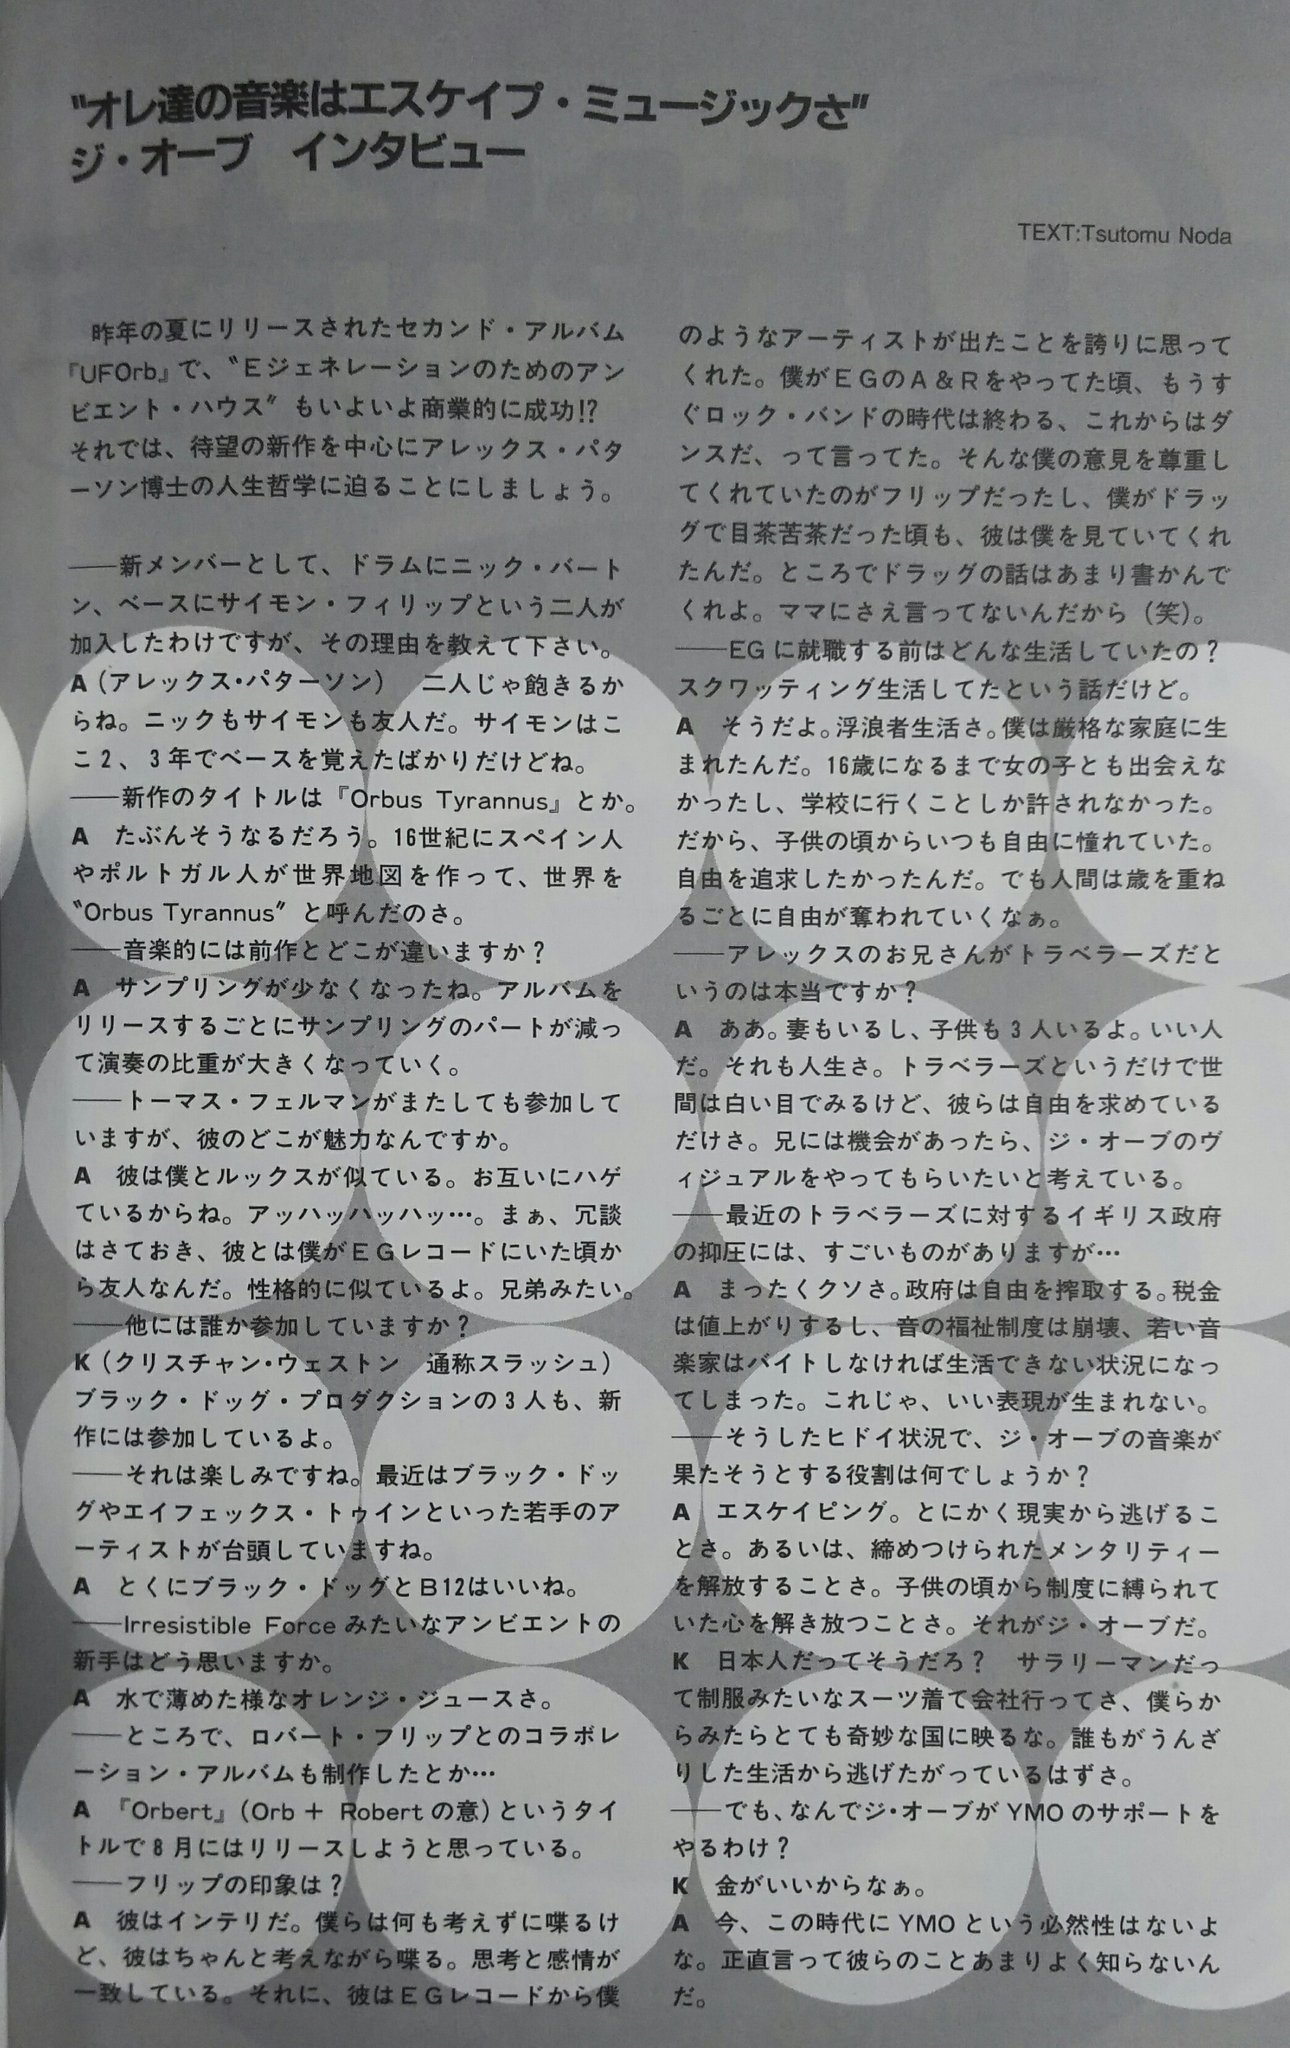 "オレ達の音楽はエスケイプ・ミュージックさ"
ジ・オーブ　インタビュー
TEXT:Tsutomu Noda
昨年の夏にリリースされたセカンド・アルバム
『UFOrb』で、〝Eジェネレーションのためのアン
ビエント・ハウス〞もいよいよ商業的に成功!?
それでは、待望の新作を中心にアレックス・パタ
ーソン博士の人生哲学に迫ることにしましょう。
——新メンバーとして、ドラムにニック・バート
ン、ベースにサイモン・フィリップという二人が
加入したわけですが、その理由を教えて下さい。
A（アレックス・パターソン）　二人じゃ飽きるか
らね。ニックもサイモンも友人だ。サイモンはこ
こ2、3年でベースを覚えたばかりだけどね。
——新作のタイトルは『Orbus Tyrannus』とか。
A　たぶんそうなるだろう。16世紀にスペイン人
やポルトガル人が世界地図を作って、世界を
〝Orbus Tyrannus〞と呼んだのさ。
——音楽的には前作とどこが違いますか？
A　サンプリングが少なくなったね。アルバムを
リリースするごとにサンプリングのパートが減っ
て演奏の比重が大きくなっていく。
——トーマス・フェルマンがまたしても参加して
いますが、彼のどこが魅力なんですか。
A　彼は僕とルックスが似ている。お互いにハゲ
ているからね。アッハッハッハッ…。まぁ、冗談
はさておき、彼とは僕がEGレコードにいた頃か
ら友人なんだ。性格的に似ているよ。兄弟みたい。
——他には誰か参加していますか？
K（クリスチャン・ウェストン　通称スラッシュ）
ブラック・ドッグ・プロダクションの3人も、新
作には参加しているよ。
——それは楽しみですね。最近はブラック・ドッ
グやエイフェックス・トゥインといった若手のア
ーティストが台頭していますね。
A　とくにブラック・ドッグとB12はいいね。
——Irresistible Forceみたいなアンビエントの
新手はどう思いますか。
A　水で薄めた様なオレンジ・ジュースさ。
——ところで、ロバート・フリップとのコラボレ
ーション・アルバムも制作したとか…
A　『Orbert』(Orb + Robertの意)というタイ
トルで8月にはリリースしようと思っている。
——フリップの印象は？
A　彼はインテリだ。僕らは何も考えずに喋るけ
ど、彼はちゃんと考えながら喋る。思考と感情が
一致している。それに、彼はEGレコードから僕
のようなアーティストが出たことを誇りに思って
くれた。僕がEGのA&Rをやってた頃、もうす
ぐロック・バンドの時代は終わる、これからはダ
ンスだ、って言ってた。そんな僕の意見を尊重し
てくれていたのがフリップだったし、僕がドラッ
グで目茶苦茶だった頃も、彼は僕を見ていてくれ
たんだ。ところでドラッグの話はあまり書かんで
くれよ。ママにさえ言ってないんだから（笑）。
——EGに就職する前はどんな生活していたの？
スクワッティング生活してたという話だけど。
A　そうだよ。浮浪者生活さ。僕は厳格な家庭に生
まれたんだ。16歳になるまで女の子とも出会えな
かったし、学校に行くことしか許されなかった。
だから、子供の頃からいつも自由に憧れていた。
自由を追求したかったんだ。でも人間は歳を重ね
るごとに自由が奪われていくなぁ。
——アレックスのお兄さんがトラベラーズだと
いうのは本当ですか？
A　ああ。妻もいるし、子供も3人いるよ。いい人
だ。それも人生さ。トラベラーズというだけで世
間は白い目でみるけど、彼らは自由を求めている
だけさ。兄には機会があったら、ジ・オーブのヴ
ィジュアルをやってもらいたいと考えている。
——最近のトラベラーズに対するイギリス政府
の抑圧には、すごいものがありますが…
A　まったくクソさ。政府は自由を搾取する。税金
は値上がりするし、音の福祉制度は崩壊、若い音
楽家はバイトしなければ生活できない状況になっ
てしまった。これじゃ、いい表現が生まれない。
——そうしたヒドイ状況で、ジ・オーブの音楽が
果たそうとする役割は何でしょうか？
A　エスケイピング。とにかく現実から逃げるこ
とさ。あるいは、締めつけられたメンタリティー
を解放することさ。子供の頃から制度に縛られて
いた心を解き放つことさ。それがジ・オーブだ。
K　日本人だってそうだろ？　サラリーマンだっ
て制服みたいなスーツ着て会社行ってさ、僕らか
らみたらとても奇妙な国に映るな。誰もがうんざ
りした生活から逃げたがっているはずさ。
——でも、なんでジ・オーブがYMOのサポートを
やるわけ？
K　金がいいからなぁ。
A　今、この時代にYMOという必然性はないよ
な。正直言って彼らのことあまりよく知らないん
だ。